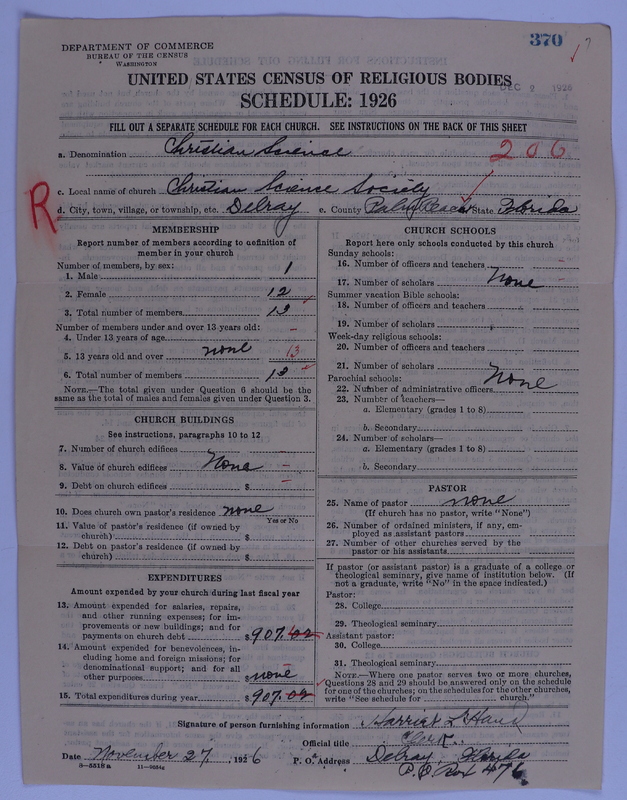 370
?
DEPARTMENT OF COMMERCE
BUREAU OF THE CENSUS
WASHINGTON
UNITED STATES CENSUS OF RELIGIOUS BODIES
DEC 2 1926
SCHEDULE: 1926
FILL OUT A SEPARATE SCHEDULE FOR EACH CHURCH. SEE INSTRUCTIONS ON THE BACK OF THIS SHEET
a. Denomination Christian Science
206
c. Local name of church Christian Science Society
R
d. City, town, village, or township, etc. Delray e. County Palm Beach State Florida
MEMBERSHIP
Report number of members according to definition of
member in your church
Number of members, by sex:
1. Male 1
2. Female 12
3. Total number of members 13
Number of members under and over 13 years old:
4. Under 13 years of age –
5. 13 years old and over none 13
6. Total number of members 13
NOTE.—The total given under Question 6 should be the
same as the total of males and females given under Question 3.
CHURCH BUILDINGS
See instructions, paragraphs 10 to 12
7. Number of church edifices –
8. Value of church edifices None –
9. Debt on church edifices $ –
10. Does church own pastor's residence none
Yes or No
11. Value of pastor's residence (if owned by
church) $
12. Debt on pastor's residence (if owned by
church) $
EXPENDITURES
Amount expended by your church during last fiscal year
13. Amount expended for salaries, repairs,
and other running expenses; for im-
provements or new buildings; and for
payments on church debt $ 907.02
14. Amount expended for benevolences, in-
cluding home and foreign missions; for
denominational support; and for all
other purposes $ none
15. Total expenditures during year $ 907.02
CHURCH SCHOOLS
Report here only schools conducted by this church
Sunday schools:
16. Number of officers and teachers –
17. Number of scholars None –
Summer vacation Bible schools:
18. Number of officers and teachers
19. Number of scholars
Week-day religious schools:
20. Number of officers and teachers
21. Number of scholars
Parochial schools:
22. Number of administrative officers None
23. Number of teachers—
a. Elementary (grades 1 to 8)
b. Secondary
24. Number of scholars—
a. Elementary (grades 1 to 8)
b. Secondary
PASTOR
25. Name of pastor none
(If church has no pastor, write "None")
26. Number of ordained ministers, if any, em-
ployed as assistant pastors
27. Number of other churches served by the
pastor or his assistants
If pastor (or assistant pastor) is a graduate of a college or
theological seminary, give name of institution below. (If
not a graduate, write "No" in the space indicated.)
Pastor:
28. College
29. Theological seminary
Assistant pastor:
30. College
31. Theological seminary
NOTE.—Where one pastor serves two or more churches,
Questions 28 and 29 should be answered only on the schedule
for one of the churches; on the schedules for the other churches,
write "See schedule for church."
Signature of person furnishing information Harriet L Hand
Official title Clerk.
Date November 27, 1926 P. O. Address Delray, Florida
8—5518a 11—9084a P.O. Box 476